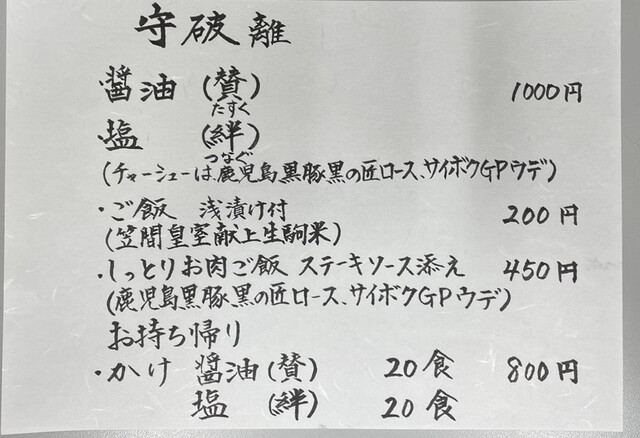 守破離
・醤油 (賛) 1000円
たすく
・塩 (絆)
つなぐ
(チャーシューは、鹿児島黒豚黒の匠ロース、サイボクGPウデ)
・ご飯 浅漬け付 200円
(笠間皇室献上生駒米)
・しっとりお肉ご飯 ステーキソース添え 450円
(鹿児島黒豚黒の匠ロース、サイボクGPウデ)
お持ち帰り
・かけ 醤油(賛) 20食 800円
塩 (絆) 20食